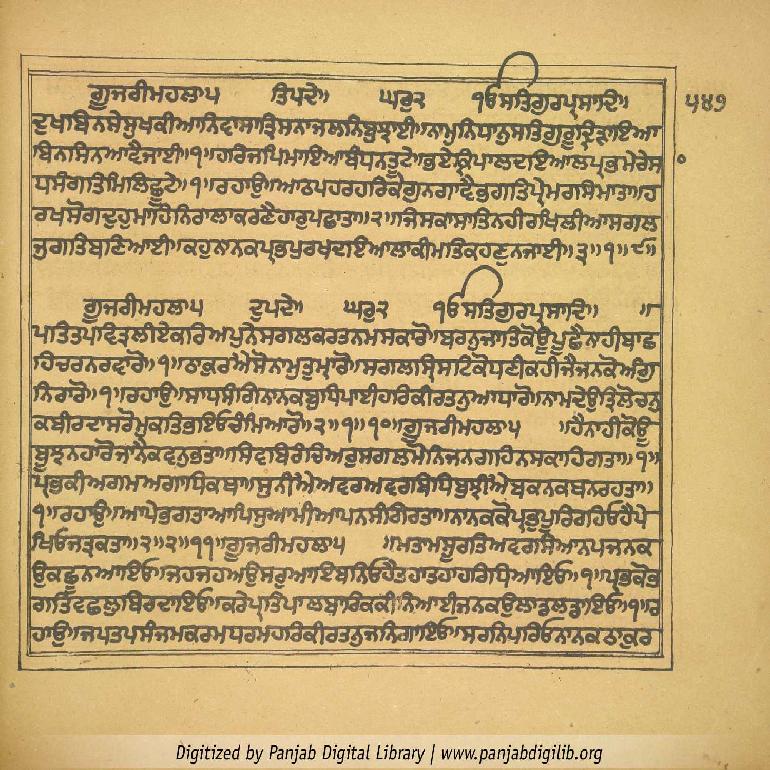 ਗੂਜਰੀਮਹਲਾ੫ ਤਿਪਦੇ॥ ਘਰੁ੨ ੴਸਤਿਗੁਰਪ੍ਰਸਾਦਿ॥ ੫੪੭
ਦੁਖਬਿਨਸੇਸੁਖਕੀਆਨਿਵਾਸਾਤ੍ਰਿਸਨਾਜਲਨਿਬੁਝਾਈ॥ਨਾਮੁਨਿਧਾਨੁਸਤਿਗੁਰੂਦ੍ਰਿੜਾਇਆ
ਬਿਨਸਿਨਆਵੈਜਾਈ॥੧॥ਹਰਿਜਪਿਮਾਇਆਬੰਧਨਤੂਟੇ॥ਭਏਕ੍ਰਿਪਾਲਦਇਆਲਪ੍ਰਭਮੇਰੇਸ
ਧਸੰਗਤਿਮਿਲਿਛੂਟੇ॥੧॥ਰਹਾਉ॥ਆਠਪਹਰਹਰਿਕੇਗੁਨਗਾਵੈਭਗਤਿਪ੍ਰੇਮਰਸਿਮਾਤਾ॥ਹ
ਰਖਸੋਗਦੁਹੁਮਾਹਿਨਿਰਾਲਾਕਰਣੈਹਾਰੁਪਛਾਤਾ॥੨॥ਜਿਸਕਾਸਾਤਿਨਹੀਰਖਿਲੀਆਸਗਲ
ਜੁਗਤਿਬਣਿਆਈ॥ਕਹੁਨਾਨਕਪ੍ਰਭਪੁਰਖਦਇਆਲਾਕੀਮਤਿਕਹਣੁਨਜਾਈ॥੩॥੧॥੯॥
ਗੂਜਰੀਮਹਲਾ੫ ਦੁਪਦੇ॥ ਘਰੁ੨ ੴਸਤਿਗੁਰਪ੍ਰਸਾਦਿ॥ ॥
ਪਤਿਤਪਵਿਤ੍ਰਲੀਏਕਰਿਅਪੁਨੇਸਗਲਕਰਤਨਮਸਕਾਰੋ॥ਬਰਨੁਜਾਤਿਕੋਊਪੂਛੈਨਾਹੀਬਾਛ
ਹਿਚਰਨਰਵਾਰੋ॥੧॥ਠਾਕੁਰਐਸੋਨਾਮੁਤੁਮ੍ਹਾਰੋ॥ਸਗਲਸ੍ਰਿਸਟਿਕੋਧਣੀਕਹੀਜੈਜਨਕੋਅੰਗੁ
ਨਿਰਾਰੋ॥੧॥ਰਹਾਉ॥ਸਾਧਸੰਗਿਨਾਨਕਬੁਧਿਪਾਈਹਰਿਕੀਰਤਨੁਆਧਾਰੋ॥ਨਾਮਦੇਉਤ੍ਰਿਲੋਚਨੁ
ਕਬੀਰਦਾਸਰੋਮੁਕਤਿਭਇਓਚੰਮਿਆਰੋ॥੨॥੧॥੧੦॥ਗੂਜਰੀਮਹਲਾ੫ ॥ਹੈਨਾਹੀਕੋਊ
ਬੂਝਨਹਾਰੋਜਾਨੈਕਵਨੁਭਤਾ॥ਸਿਵਬਿਰੰਚਿਅਰੁਸਗਲਮੋਨਿਜਨਗਹਿਨਸਕਾਹਿਗਤਾ॥੧॥
ਪ੍ਰਭਕੀਅਗਮਅਗਾਧਿਕਥਾ॥ਸੁਨੀਐਅਵਰਅਵਰਬਿਧਿਬੁਝੀਐਬਕਨਕਥਨਰਹਤਾ॥
੧॥ਰਹਾਉ॥ਆਪੇਭਗਤਾਆਪਿਸੁਆਮੀਆਪਨਸੰਗਿਰਤਾ॥ਨਾਨਕਕੋਪ੍ਰਭੁਪੂਰਿਰਹਿਓਹੈਪੇ
ਖਿਓਜਤ੍ਰਕਤਾ॥੨॥੨॥੧੧॥ਗੂਜਰੀਮਹਲਾ੫ ॥ਮਤਾਮਸੂਰਤਿਅਵਰਸਿਆਨਪਜਨਕ
ਉਕਛੂਨਆਇਓ॥ਜਹਜਹਅਉਸਰੁਆਇਬਨਿਓਹੈਤਹਾਤਹਾਹਰਿਧਿਆਇਓ॥੧॥ਪ੍ਰਭਕੋਭ
ਗਤਿਵਛਲੁਬਿਰਦਾਇਓ॥ਕਰੇਪ੍ਰਤਿਪਾਲਬਾਰਿਕਕੀਨਿਆਈਜਨਕਉਲਾਡਲਡਾਇਓ॥੧॥ਰ
ਹਾਉ॥ਜਪਤਪਸੰਜਮਕਰਮਧਰਮਹਰਿਕੀਰਤਨੁਜਨਿਗਾਇਓ॥ਸਰਨਿਪਰਿਓਨਾਨਕਠਾਕੁਰ
Digitized by Panjab Digital Library | www.panjabdigilib.org